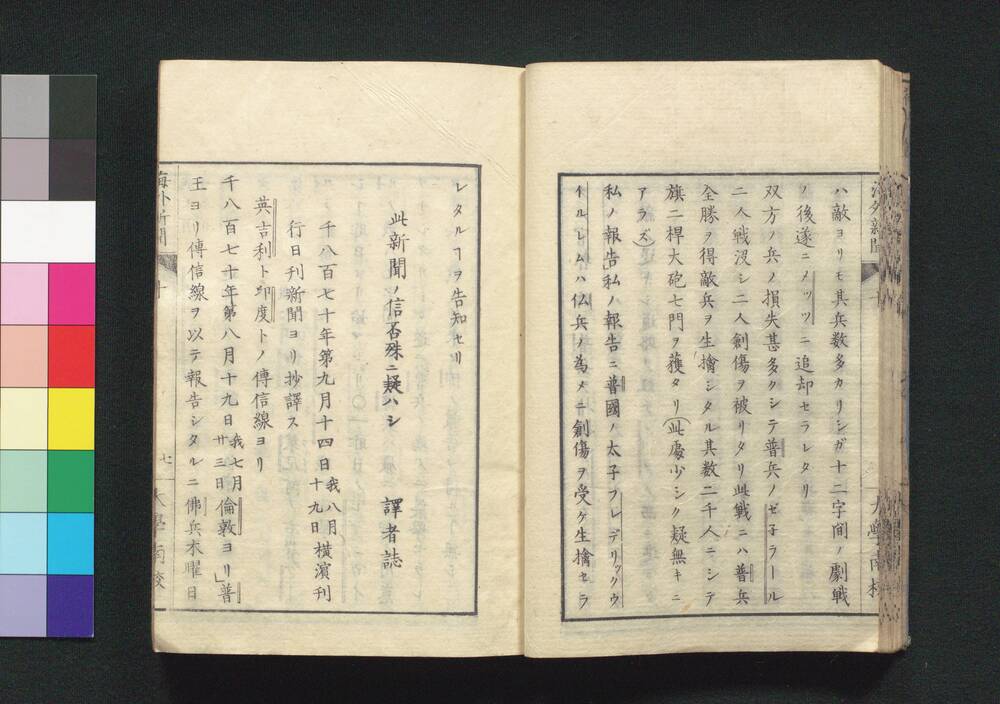 ハ敵ヨリモ其兵数多カリシガ十二字間ノ劇戦
ノ後遂ニメッツニ追却セラレタリ
双方ノ兵ノ損失甚多クシテ普兵ノゼ子ラール
二人戦没シ二人創傷ヲ被リタリ此戦ニハ普兵
全勝ヲ得敵兵ヲ生擒シタル其数二千人ニシテ
旗二桿大砲七門ヲ獲タリ(此處少シク疑無キニ
アラズ)
私ノ報告」私ハ報告ニ普國ノ太子フレデリックウ
イルレムハ仏兵ノ為メニ創傷ヲ受ケ生擒セラ
海外新聞
大學南校
レタルヿヲ告知セリ
此新聞ノ信否殊ニ疑ハシ 譯者誌
千八百七十年第九月十四日我八月十九日横濱刊
行日刊新聞ヨリ抄譯ス
英吉利ト印度トノ傳信線ヨリ
千八百七十年第八月十九日我七月廿三日倫敦ヨリ」普
王ヨリ傳信線ヲ以テ報告シタルニ佛兵木曜日
海外新聞
十
七
大學南校